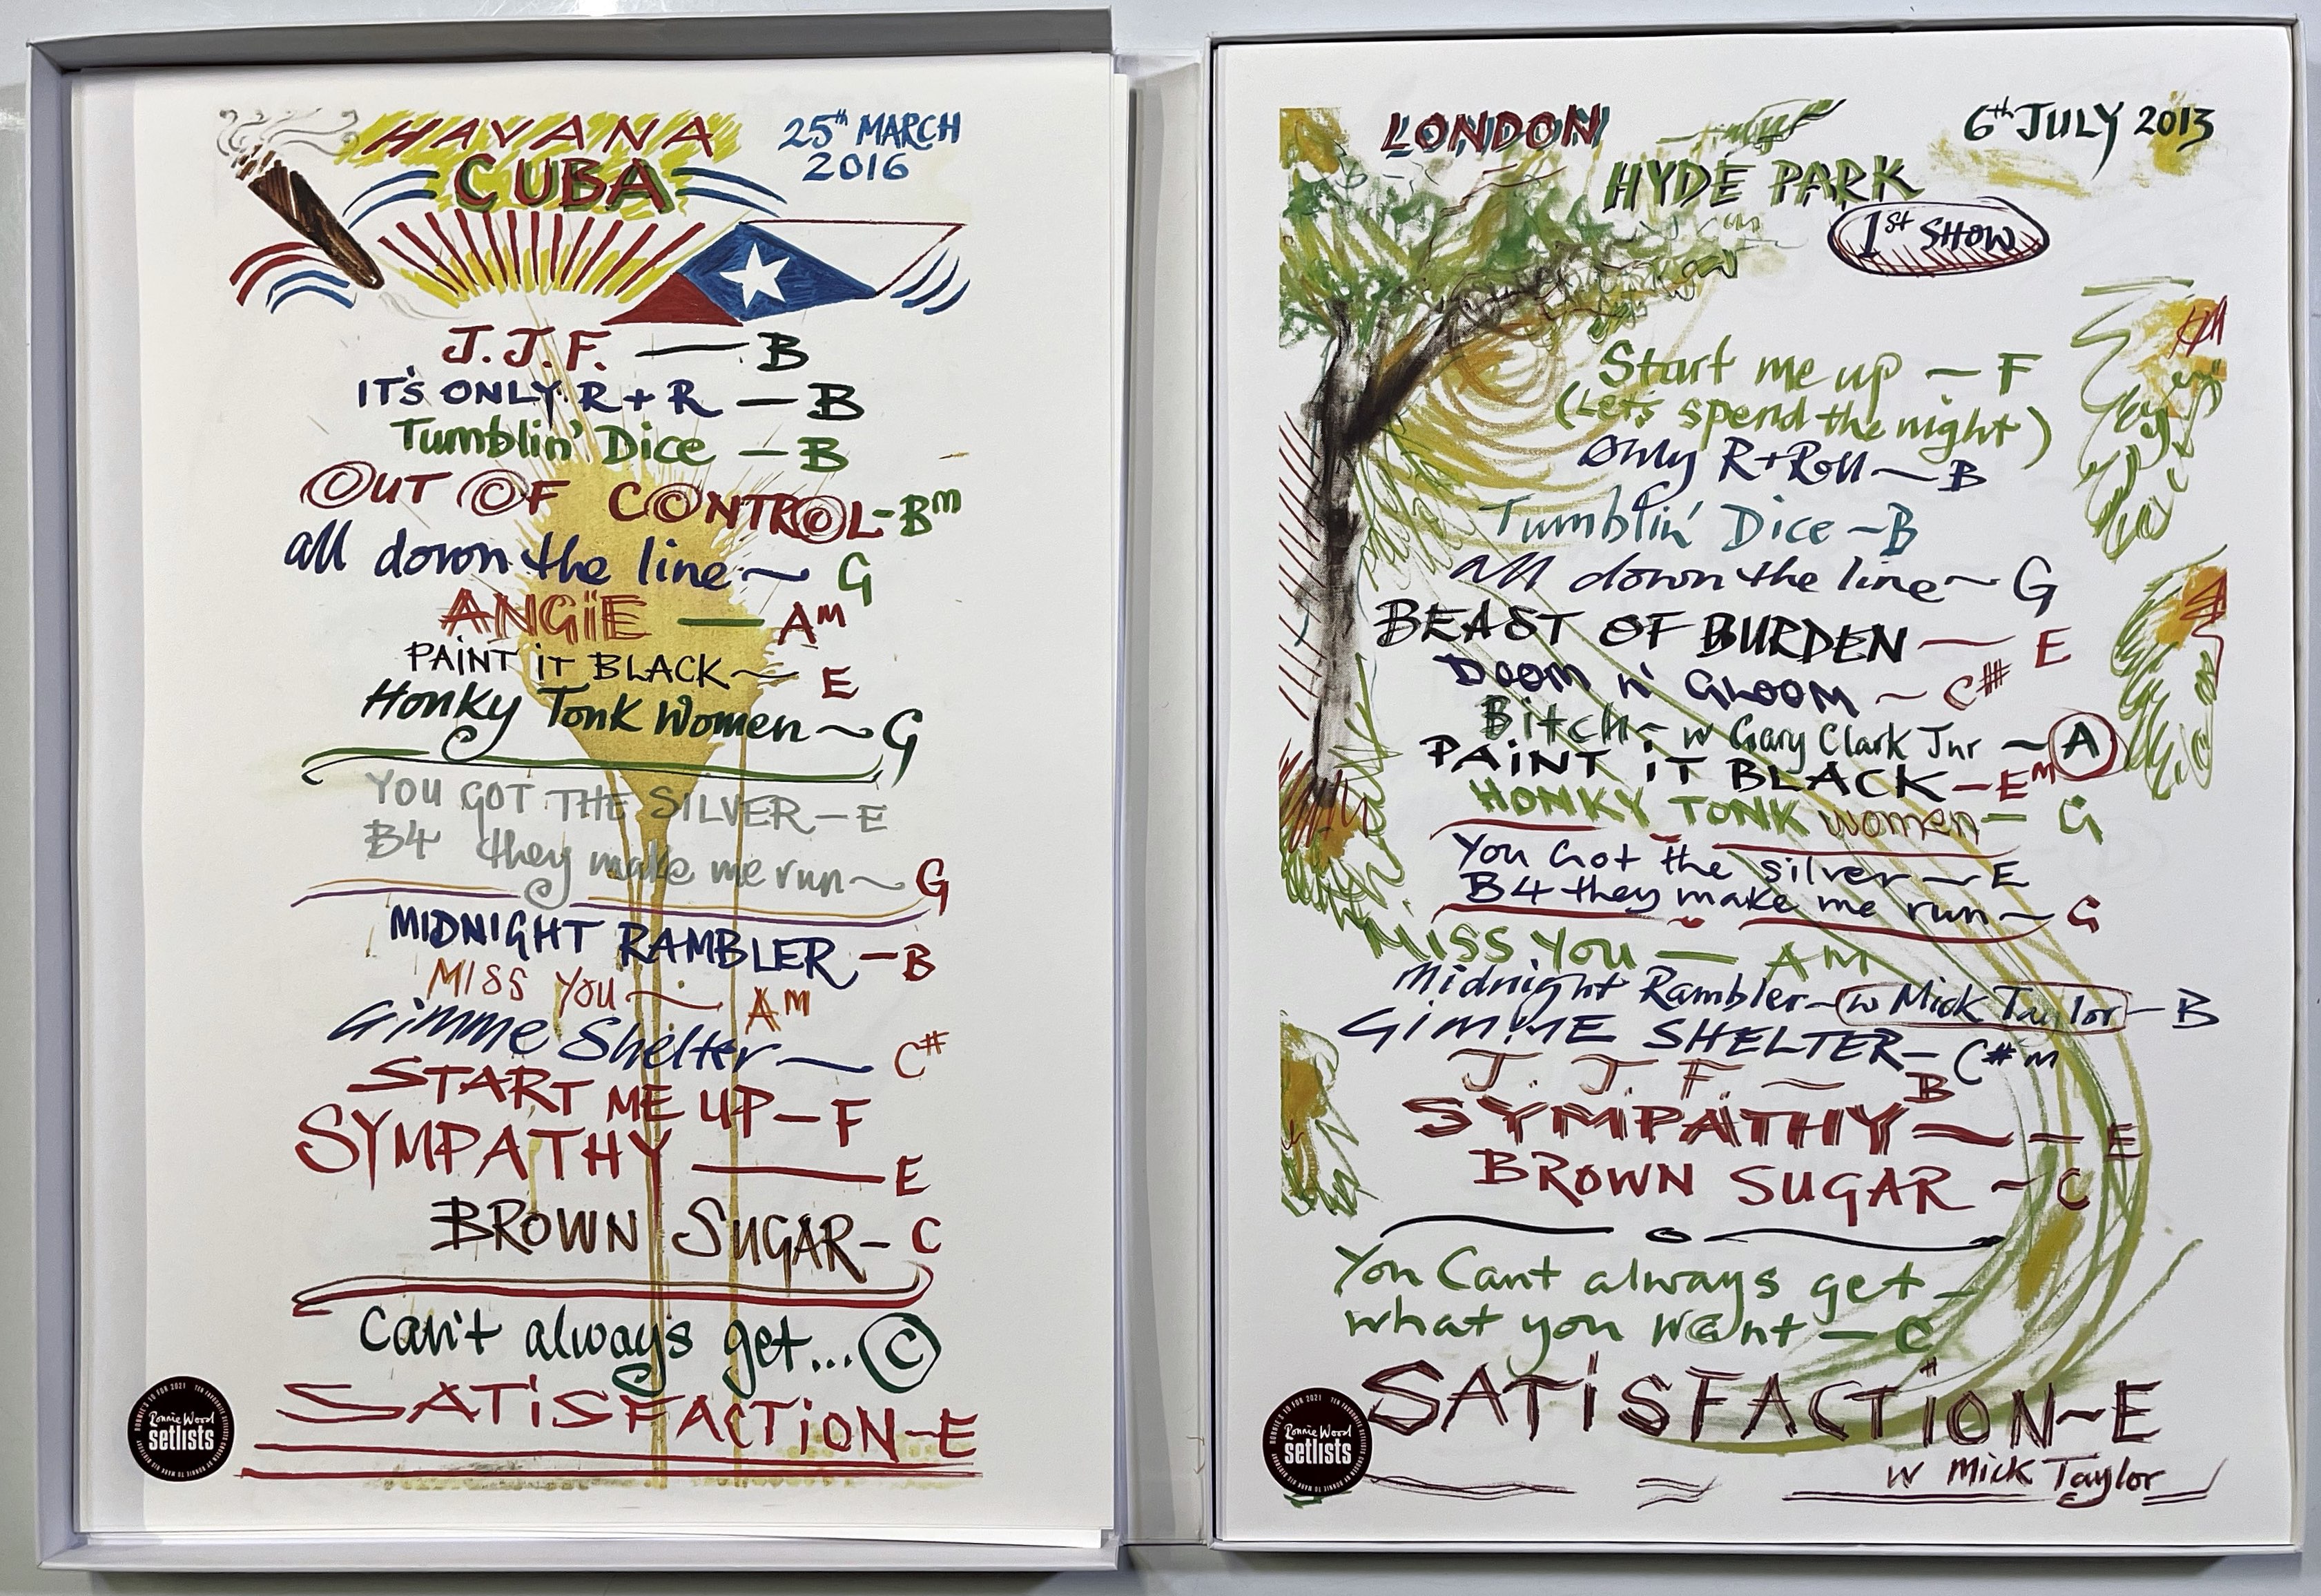 HAVANA
CUBA
25th MARCH
2016
J.J.F. — B
IT'S ONLY R + R — B
Tumblin' Dice — B
OUT OF CONTROL - Bm
all down the line ~ G
ANGiE — Am
PAINT iT BLACK ~ E
Honky Tonk Women ~ G
YOU GOT THE SILVER — E
B4 they make me run ~ G
MIDNIGHT RAMBLER — B
MISS YOU ~ Am
Gimme Shelter ~ C#
START ME UP — F
SYMPATHY — E
BROWN SUGAR — C
Can't always get... C
SATiSFACTiON — E
Ronnie Wood
setlists
LONDON
HYDE PARK
6th JULY 2013
1st SHOW
Start me up — F
(Let's spend the night)
Only R+Roll ~ B
Tumblin' Dice ~ B
All down the line ~ G
BEAST OF BURDEN — E
DOOM n' GLOOM ~ C#
Bitch ~ w Gary Clark Jnr ~ A
PAiNT iT BLACK — Em
HONKY TONK women — G
You Got the silver — E
B4 they make me run ~ G
MISS YOU — AM
Midnight Rambler — w Mick Taylor — B
GIMME SHELTER — C#m
J. J. F. ~ B
SYMPATHY — E
BROWN SUGAR ~ C
You Cant always get
what you want — C
SATiSFACTiON ~ E
w Mick Taylor
Ronnie Wood
setlists